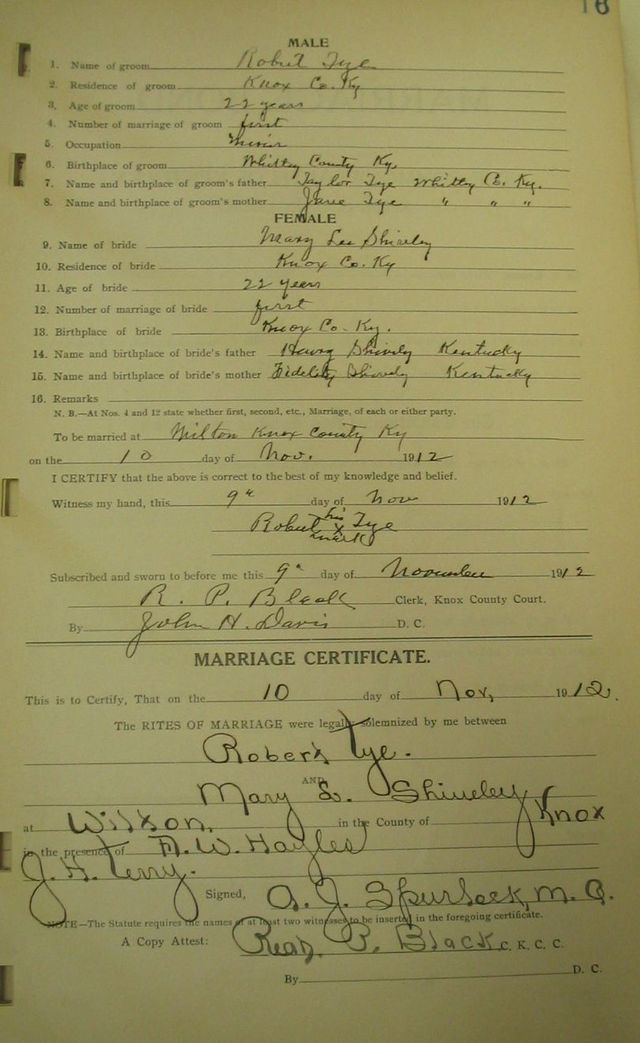 16
MALE
1. Name of groom Robert Tye
2. Residence of groom Knox Co. Ky
3. Age of groom 22 years
4. Number of marriage of groom first
5. Occupation Miner
6. Birthplace of groom Whitley County Ky.
7. Name and birthplace of groom's father Taylor Tye Whitley Co. Ky.
8. Name and birthplace of groom's mother Jane Tye " " "
FEMALE
9. Name of bride Mary Lee Shiveley
10. Residence of bride Knox Co. Ky
11. Age of bride 22 years
12. Number of marriage of bride first
13. Birthplace of bride Knox Co. Ky.
14. Name and birthplace of bride's father Shively Kentucky
15. Name and birthplace of bride's mother Fidelity Shively Kentucky
16. Remarks
N. B.—At Nos. 4 and 12 state whether first, second, etc., Marriage, of each or either party.
To be married at Wilton Knox County Ky
on the 10 day of Nov. 1912
I CERTIFY that the above is correct to the best of my knowledge and belief.
Witness my hand, this 9" day of Nov 1912
Robert his x mark Tye
Subscribed and sworn to before me this 9" day of November 1912
R. P. Black Clerk, Knox County Court.
By John H. Davis D. C.
MARRIAGE CERTIFICATE.
This is to Certify, That on the 10 day of Nov, 1912.
The RITES OF MARRIAGE were legally solemnized by me between
Robert Tye.
AND
Mary L. Shiveley
at Wilton, in the County of Knox
in the presence of A. W. Hayles
J. H. Terry.
Signed, A. J. Spurlock, M. G.
NOTE—The Statute requires the names of at least two witnesses to be inserted in the foregoing certificate.
A Copy Attest: Read P. Black C. K. C. C.
By D. C.